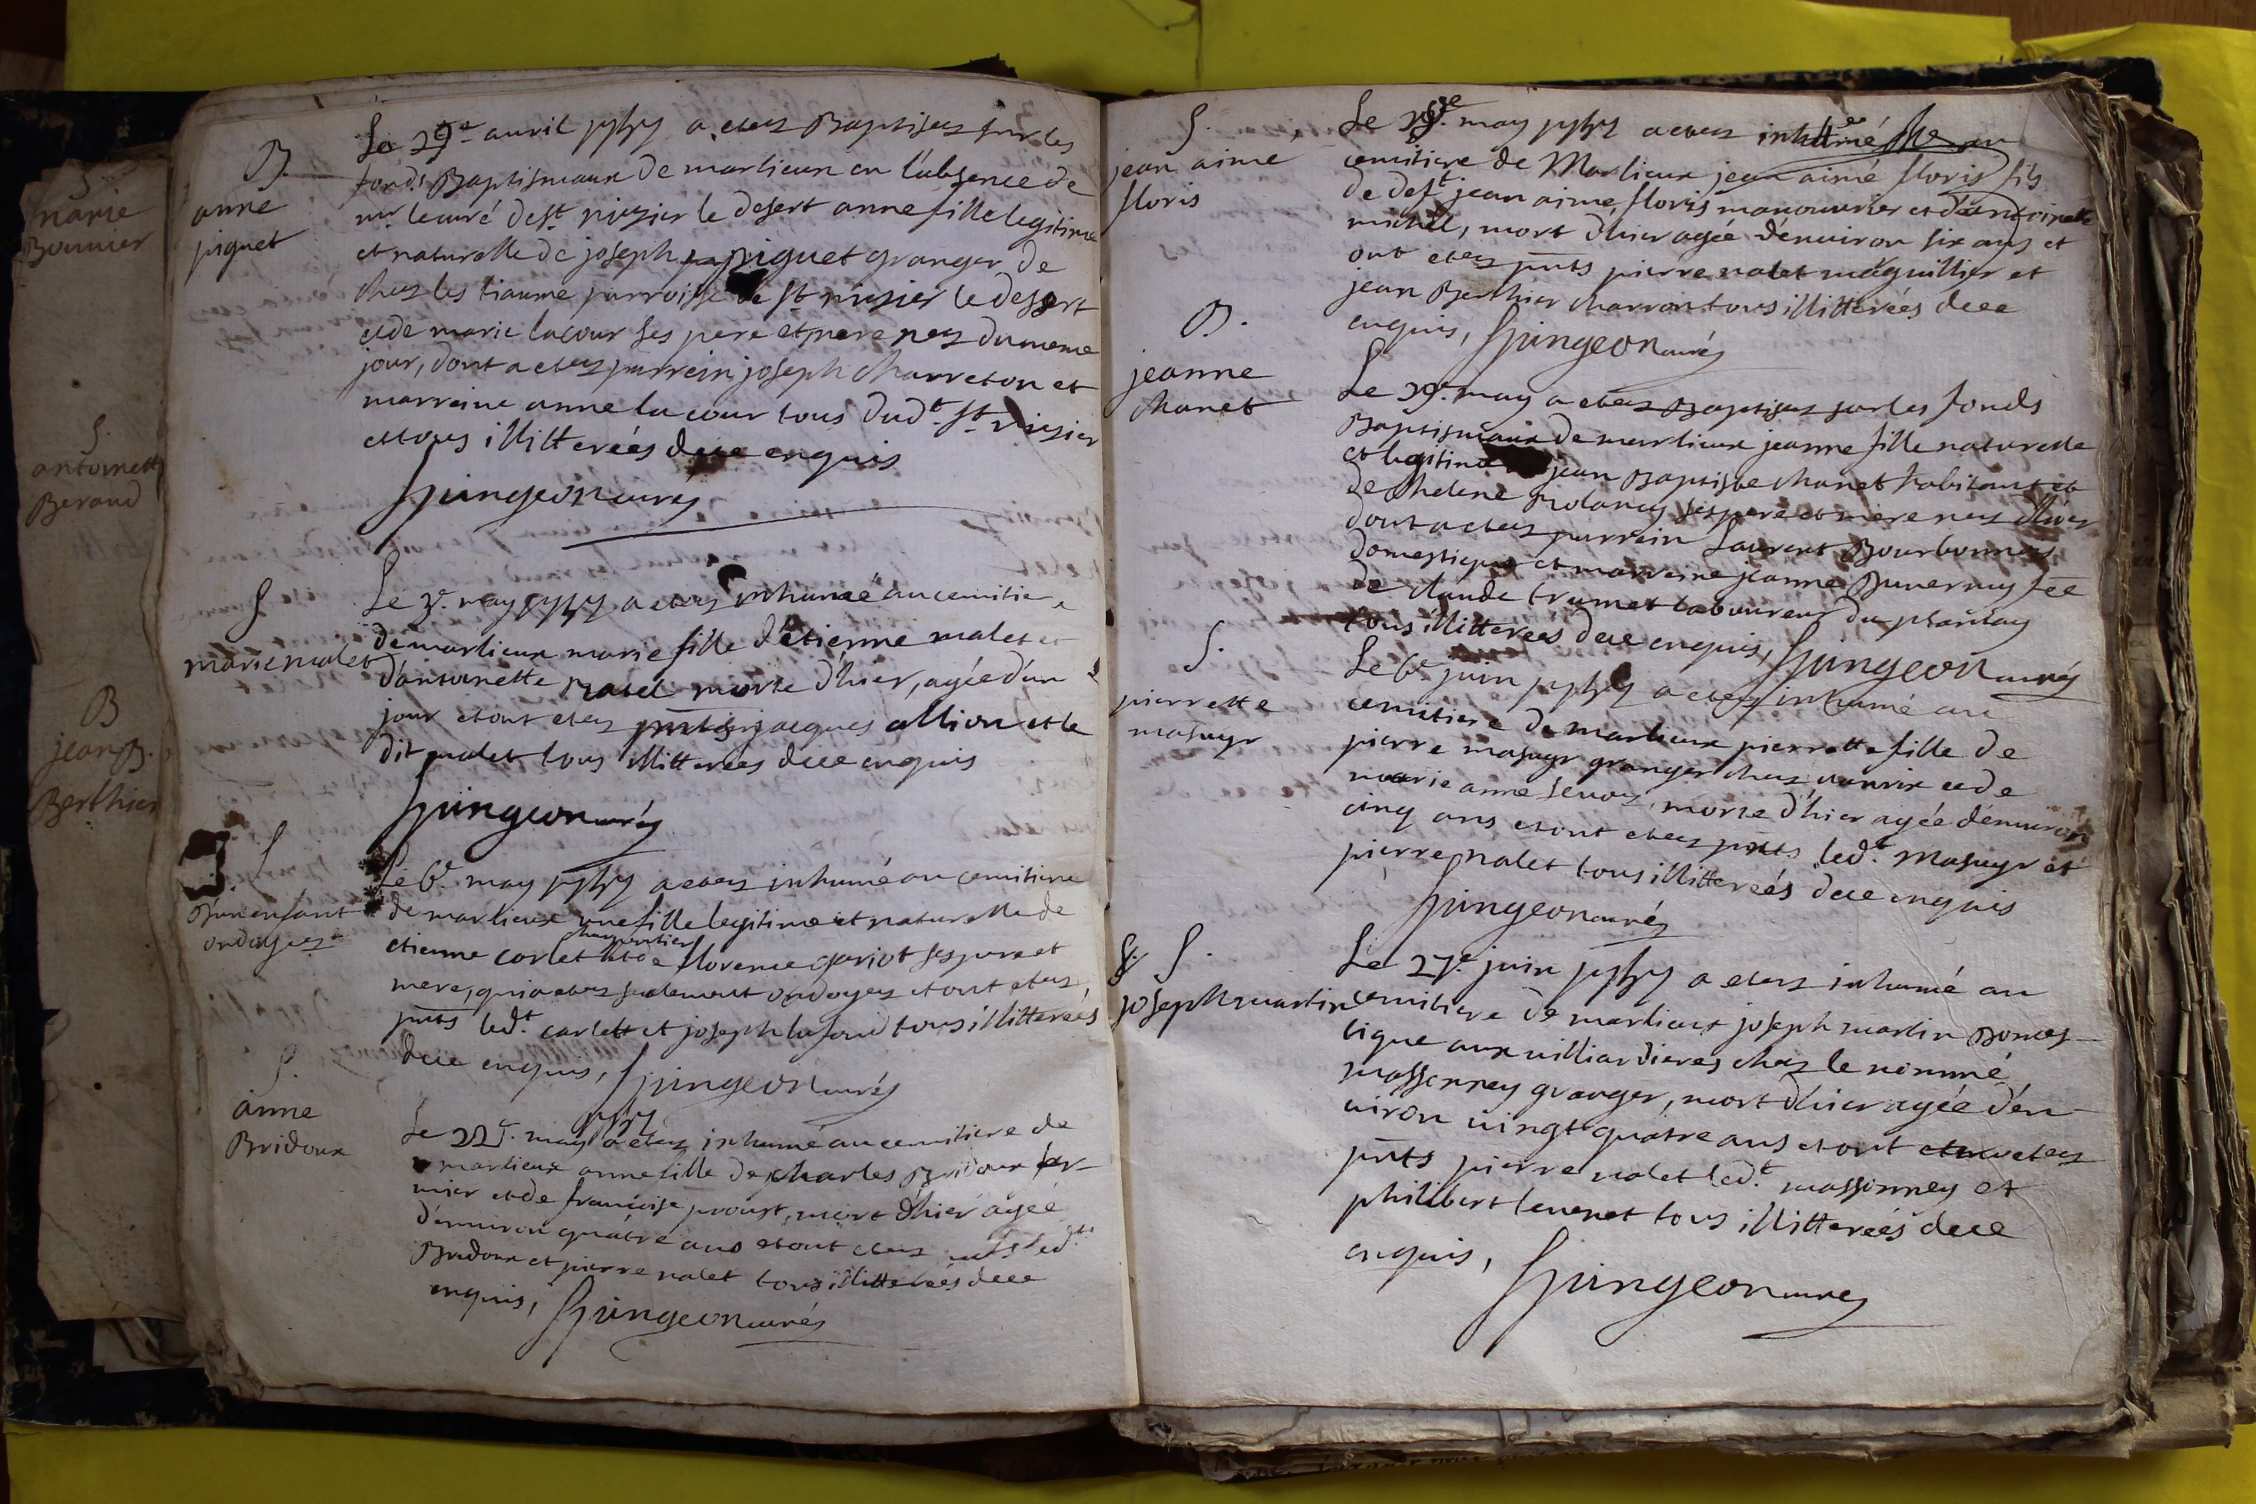 marie
Bonnier
S.
antoinette
Beraud
B
jean B.
Berthier
B.
anne
piguet
Le 29e avril a etez Baptisez sur les
fonds Baptismaux de marlieux en l'absence de
mr le curé de st nizier le desert anne fille legitime
et naturelle de joseph piguet granger de
chez les tiaume parroisse de st nizier le desert
et de marie lacour ses pere et mere nez du meme
jour, dont a etez parrein joseph charreton et
marreine anne la cour tous dud.t st nizier
et tous illitterées dece enquis
Spingeon curéz
S
marie malet
Le 3e. may a etez inhumée au cemitiere
de marlieux marie fille d'etienne malet et
d'antoinette morte d'hier, agée d'un
jour et ont etez pnts jacques allion et le
dit malet tous illitterées dece enquis
Spingeon curéz
S
D'un enfant
ondoyez
Le 6e. may a etez inhumé au cemitiere
de marlieux une fille legitime et naturelle de
charpentier
etienne carlet et de florence gariot ses pere et
mere, qui a etez seulement ondoyez et ont etez,
pnts led.t carlet et joseph lafond tous illitterées
dece enquis, Spingeon curéz
S.
anne
Bridoux
Le 22e. may a etez inhumé au cemitiere de
marlieux anne fille de charles Bridoux fer-
mier et de françoise proust, mort d'hier agée
d'environ quatre ans et ont etez pnts led.t
Bridoux et pierre nalet tous illitterées dece
enquis, Spingeon curéz
S.
jean aimé
floris
Le may a etez inhumé au
cemitiere de Marlieux jean aimé floris fils
de deft jean aimé floris manouvrier et d'andoinette
michel, mort d'hier agée d'environ six ans et
ont etez pnts pierre nalet maguillier et
jean Berthier charron tous illitterées dece
enquis, Spingeon curéz
B.
jeanne
chanet
Le 29e. may a etez Baptisez sur les fonds
Baptismaux de marlieux jeanne fille naturelle
et legitime jean Baptiste chanet habitant et
de helene ses pere et mere nez d'hier
dont a etez parrein Laurent Bourbonney
domestique et marreine jeanne fée
de claude laboureur du plantay
tous illitterées dece enquis, Spingeon curéz
S.
pierrette
masuyr
Le 6e juin a etez inhumé au
cemitiere de marlieux pierrette fille de
pierre masuyr granger chez et de
marie anne morte d'hier agée d'environ
cinq ans et ont etez pnts led.t Masuyr et
pierre nalet tous illitterées dece enquis
Spingeon curéz
S.
joseph martin
Le 27e. juin a etez inhumé au
cemitiere de marlieux joseph martin Domes-
tique aux villiardieres chez le nommé
massonney granger, mort d'hier agée d'en-
viron vingt quatre ans et ont etez
pnts pierre nalet led.t massonney et
philibert tevenet tous illitterées dece
enquis,
Spingeon curéz